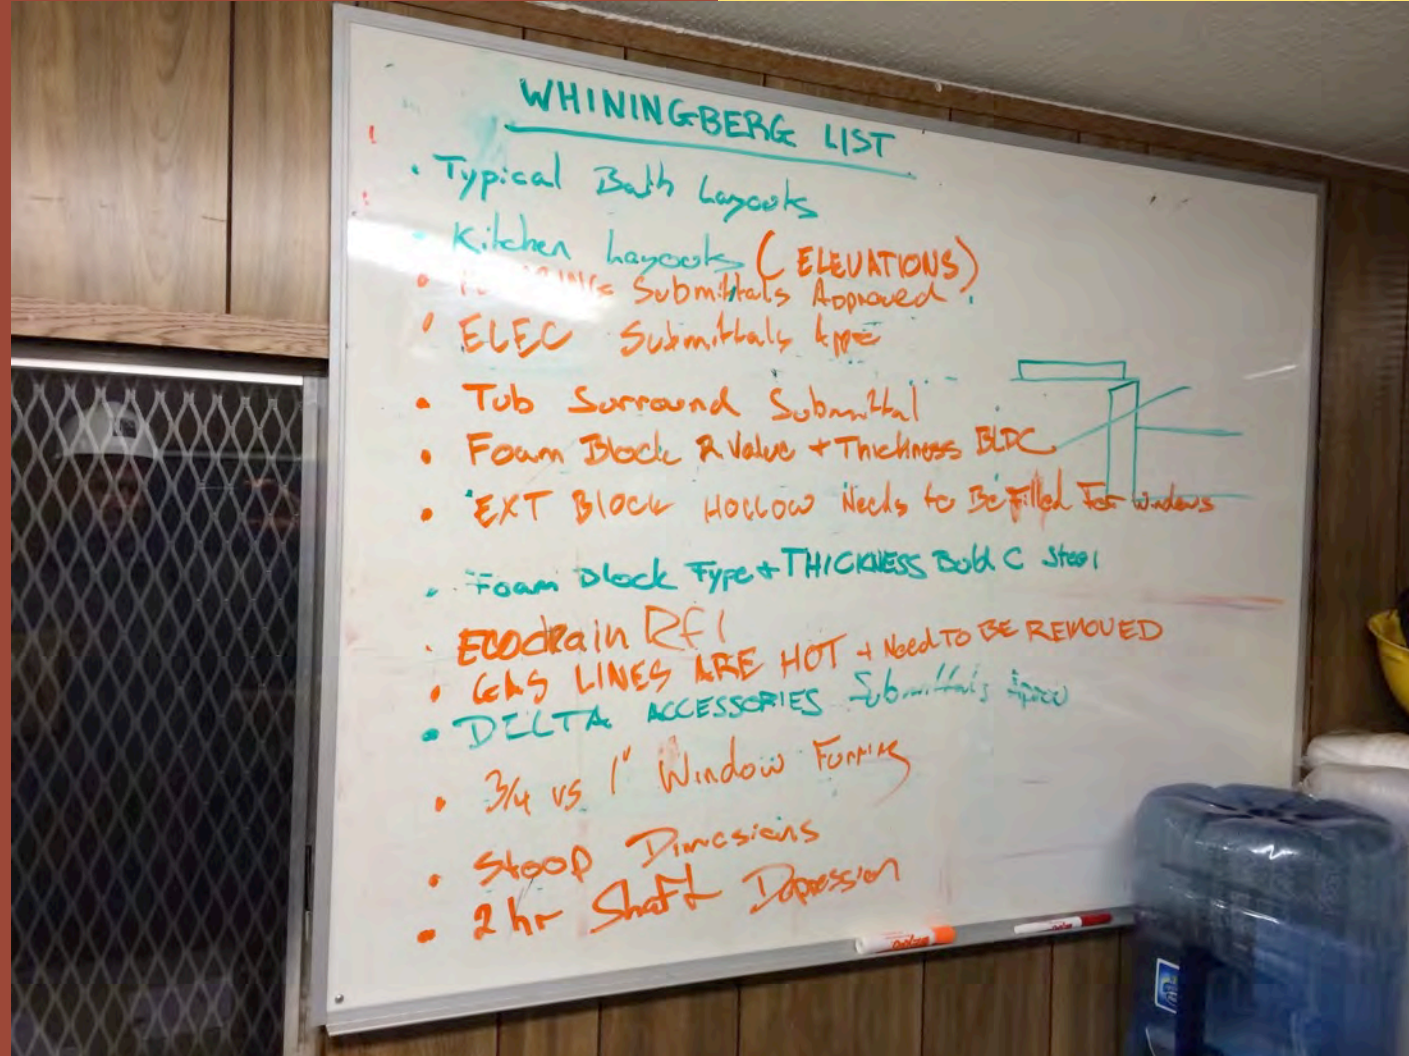 WHININGBERG LIST
• Typical Bath Layouts
• Kitchen Layouts (ELEVATIONS)
• Submittals Approved
• ELEC Submittals
• Tub Surround Submittal
• Foam Block R Value + Thickness BLDC
• EXT Block Hollow Needs to Be Filled For Windows
• Foam Block Type + THICKNESS Build C Steel
• ECOdrain RFI
• GAS LINES ARE HOT + Need TO BE REMOVED
• DELTA ACCESSORIES Submittals
• 3/4 vs 1" Window Furring
• Stoop Dimesions
• 2 hr Shaft Depression